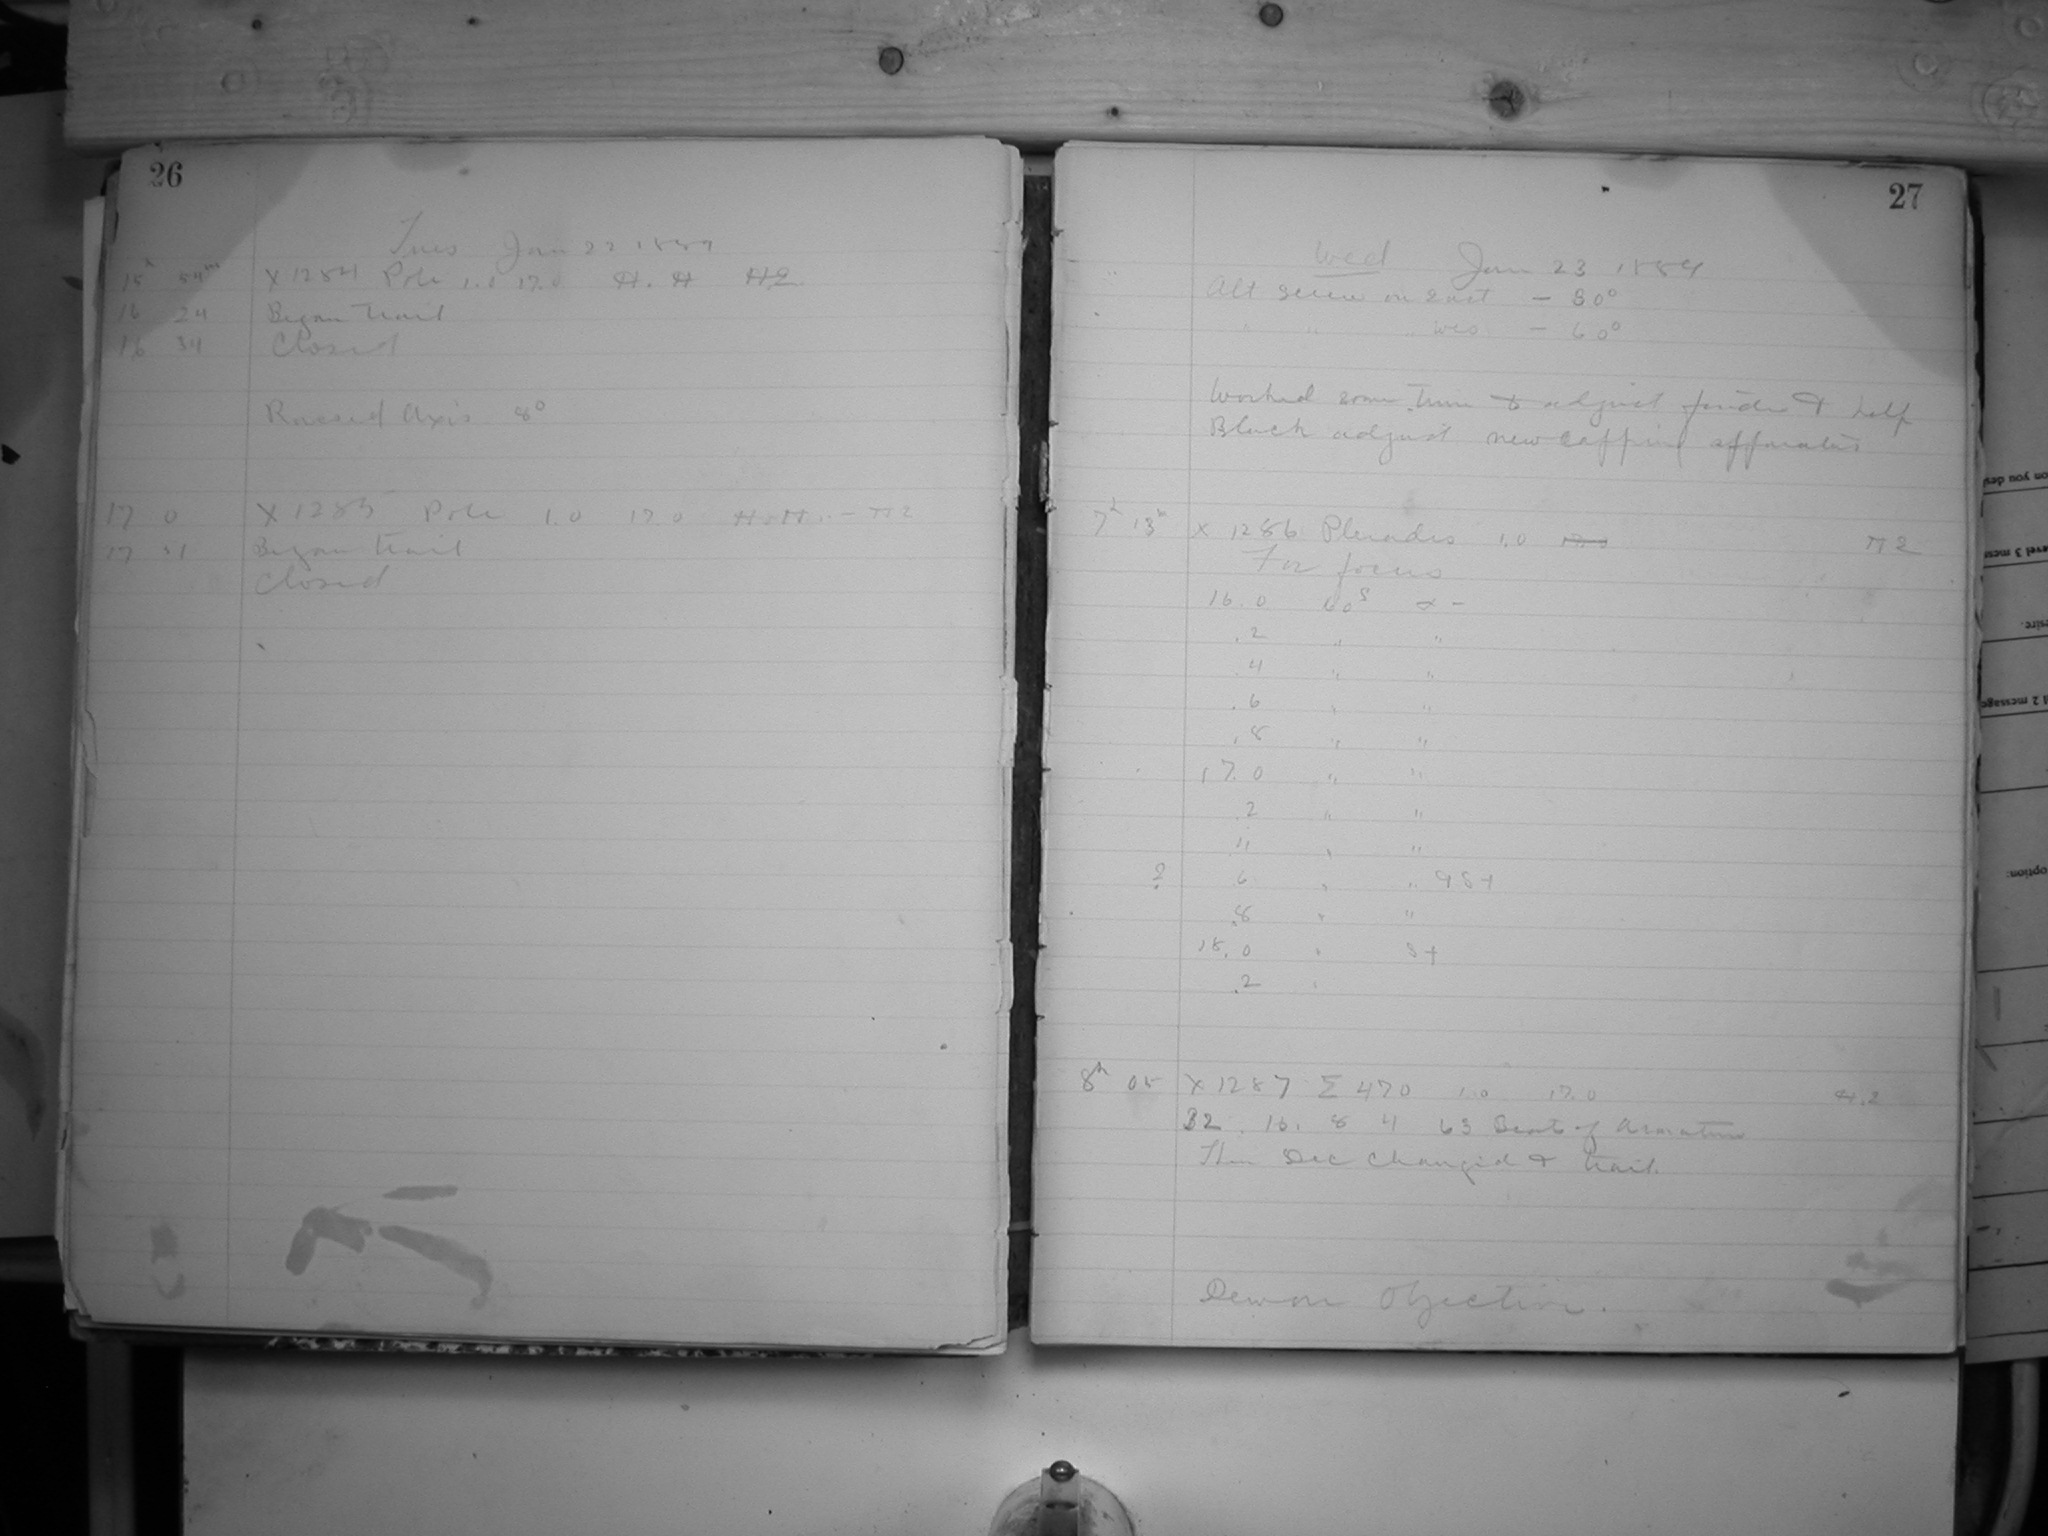 26
Tues Jan 22 1889
15h 54m X 1284 Pole 1.0 17.0 H. H H2
16 24 Began trail
16 34 Closed
Raised Axis 8°
17 0 X 1285 Pole 1.0 17.0 H.H. - H2
17 31 Began trail
Closed
27
Wed Jan 23 1889
Alt screw on East - 80°
" " " wes - 60°
Worked some time to adjust finder & help
Black adjust new capping apparatus
7h 13m X 1286 Pleiades 1.0 H2
For focus
16.0 60s α -
.2 " "
.4 " "
.6 " "
.8 " "
17.0 " "
.2 " "
4 " "
? 6 " " 9 S+
.8 " "
18.0 " S+
.2 "
8h 05 X 1287 Σ 470 1.0 17.0 H.2
32. 16. 8 4 63 Beats of Armature
Then Dec changed & trail.
Objective.